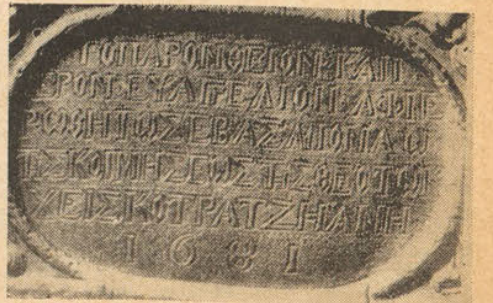 ΤΟ ΠΑΡΟΝ ΘΕΙΟΝ ΚΑΙ ΙΕ
ΡΟΝ ΕΥΑΓΓΕΛΙΟΝ ΑΦΙΕ
ΡΩΘΗ ΤΩ ΣΕΒΑΣΜΙΟ ΝΑΩ
ΤΗΣ ΚΟΙΜΗΣΕΩΣ ΤΗΣ ΘΕΟΤΟΚ
ΕΙΣ ΚΟΤΡΑΤΖΗΑΝΗ
1681